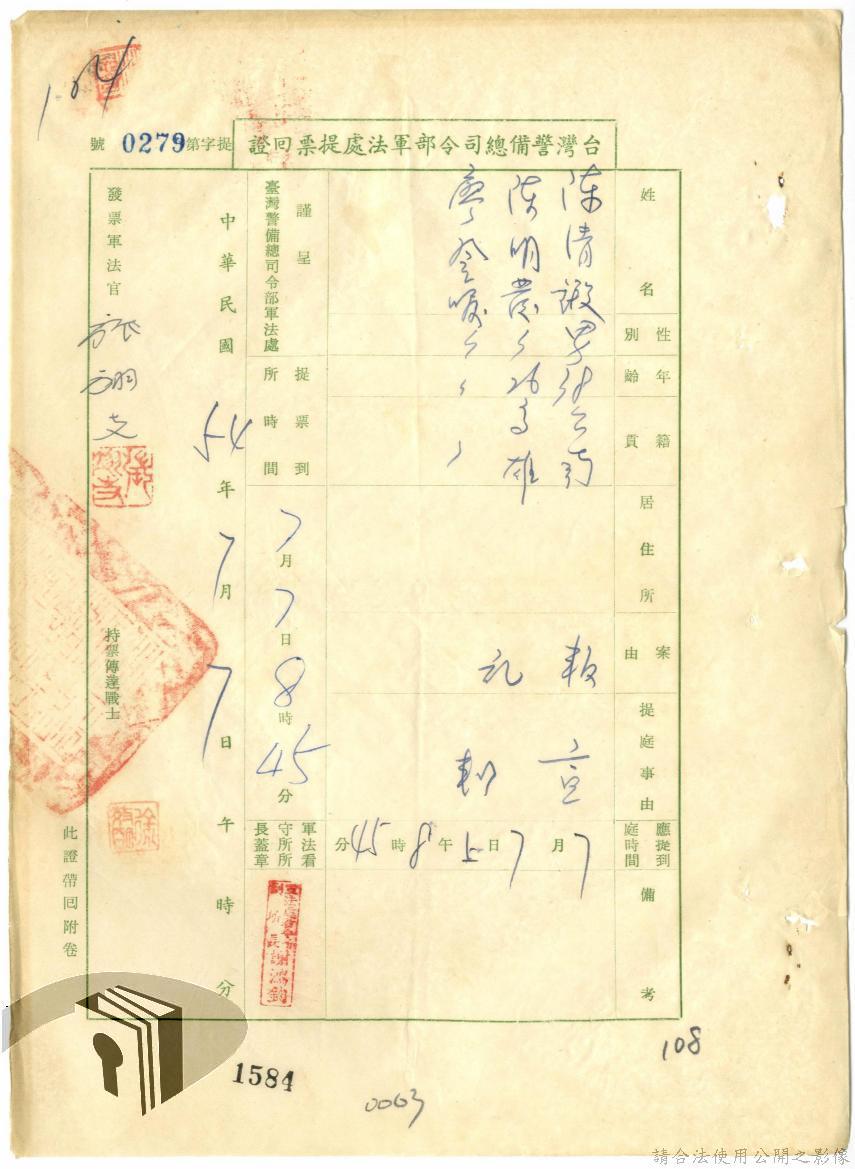 台灣警備總司令部軍法處提票回證
提字第0279號
姓名
性別
年齡
籍貫
居住所
案由
提庭事由
應提到庭時間
備考
陳清
男
陳明
高雄
叛亂
宣判
7月7日上午8時45分
謹呈
臺灣警備總司令部軍法處
提票到所時間
7月7日8時45分
軍法看守所所長蓋章
所長謝鴻鈞
中華民國54年7月7日午時分
發票軍法官
持票傳達戰士
此證帶回附卷
1584
0063
108
請合法使用公開之影像